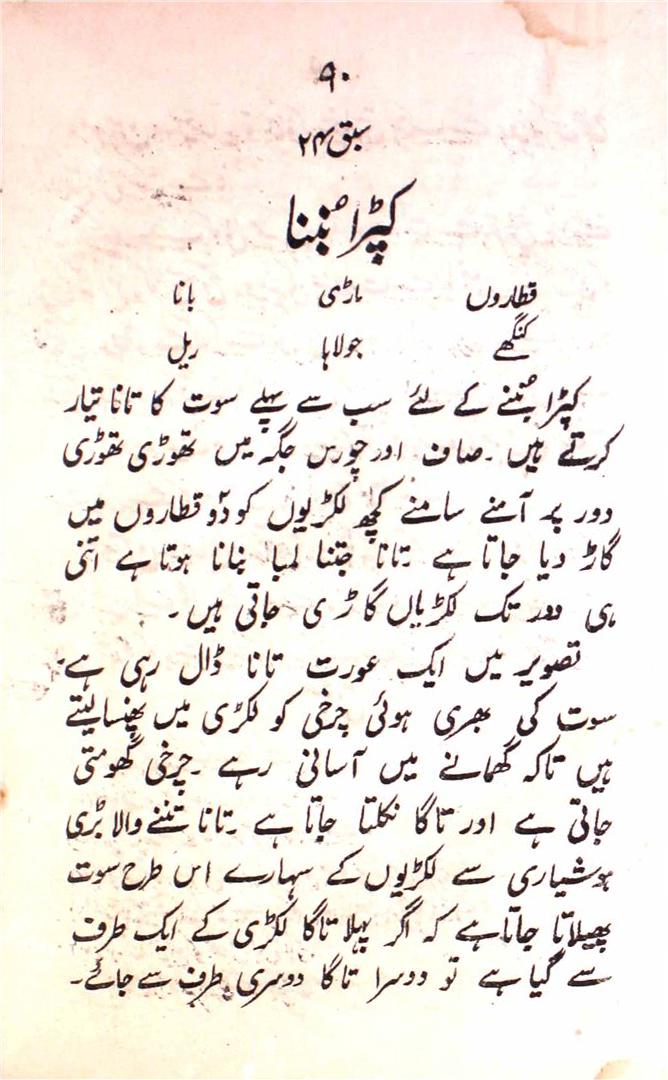 ۹۰
سبق ۲۴
کپڑا بُننا
قطاروں ماڑی بانا
کنگھے جولاہا ریل
کپڑا بُننے کے لئے سب سے پہلے سوت کا تانا تیار
کرتے ہیں ۔ صاف اور چورس جگہ میں تھوڑی تھوڑی
دور پر آمنے سامنے کچھ لکڑیوں کو دو قطاروں میں
گاڑ دیا جاتا ہے ۔ تانا جتنا لمبا بنانا ہوتا ہے اتنی
ہی دور تک لکڑیاں گاڑی جاتی ہیں ۔
تصویر میں ایک عورت تانا ڈال رہی ہے۔
سوت کی بھری ہوئی چرخی کو لکڑی میں پھنسا لیتے
ہیں تاکہ گھمانے میں آسانی رہے ۔ چرخی گھومتی
جاتی ہے اور تاگا نکلتا جاتا ہے ۔ تانا تننے والا بڑی
ہوشیاری سے لکڑیوں کے سہارے اس طرح سوت
پھیلاتا جاتا ہے کہ اگر پہلا تاگا لکڑی کے ایک طرف
سے گیا ہے تو دوسرا تاگا دوسری طرف سے جائے۔